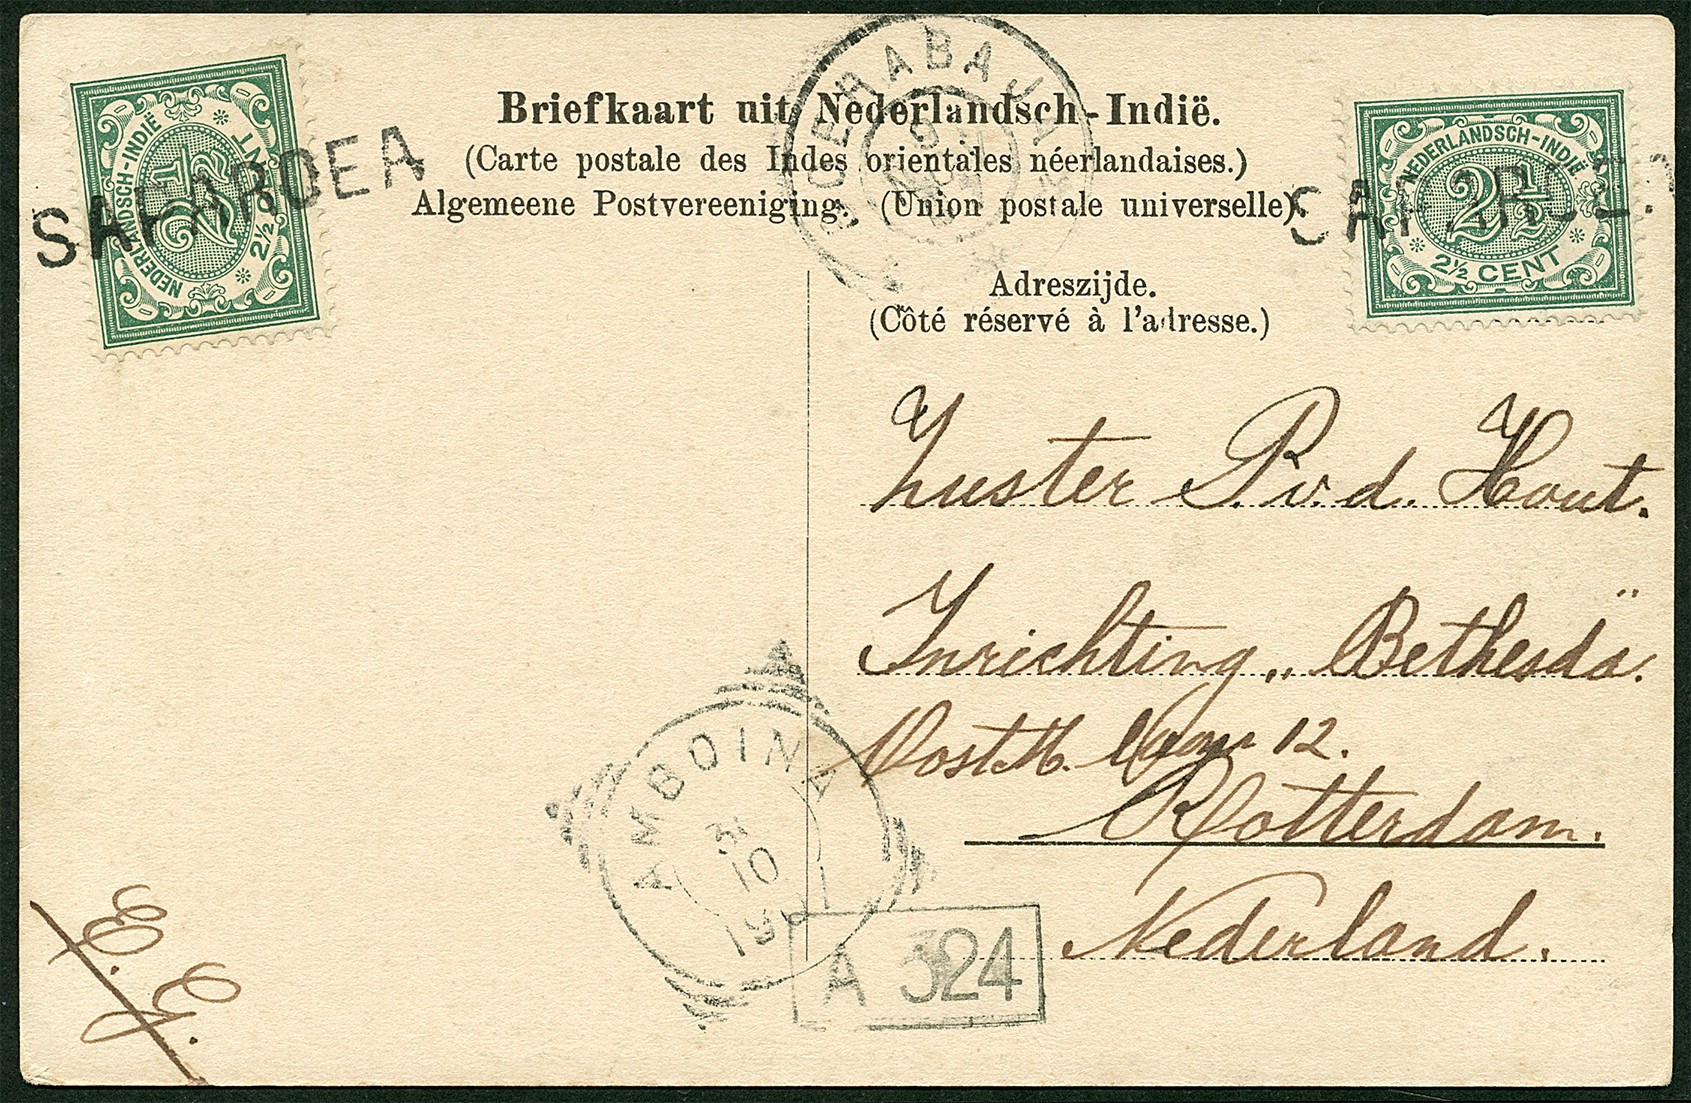 Briefkaart uit Nederlandsch-Indië.
(Carte postale des Indes orientales néerlandaises.)
Algemeene Postvereeniging (Union postale universelle)
Adreszijde.
(Côté réservé à l'adresse.)
NEDERLANDSCH-INDIË
2½
2½ CENT
SAPAROEA
NEDERLANDSCH-INDIË
2½
2½ CENT
SAPAROEA
SOERABAJA
9
Zuster P. v. d. Hout.
Inrichting „Bethesda".
Oost M. laan 12.
Rotterdam.
Nederland.
AMBOINA
10
A 324
E. G.